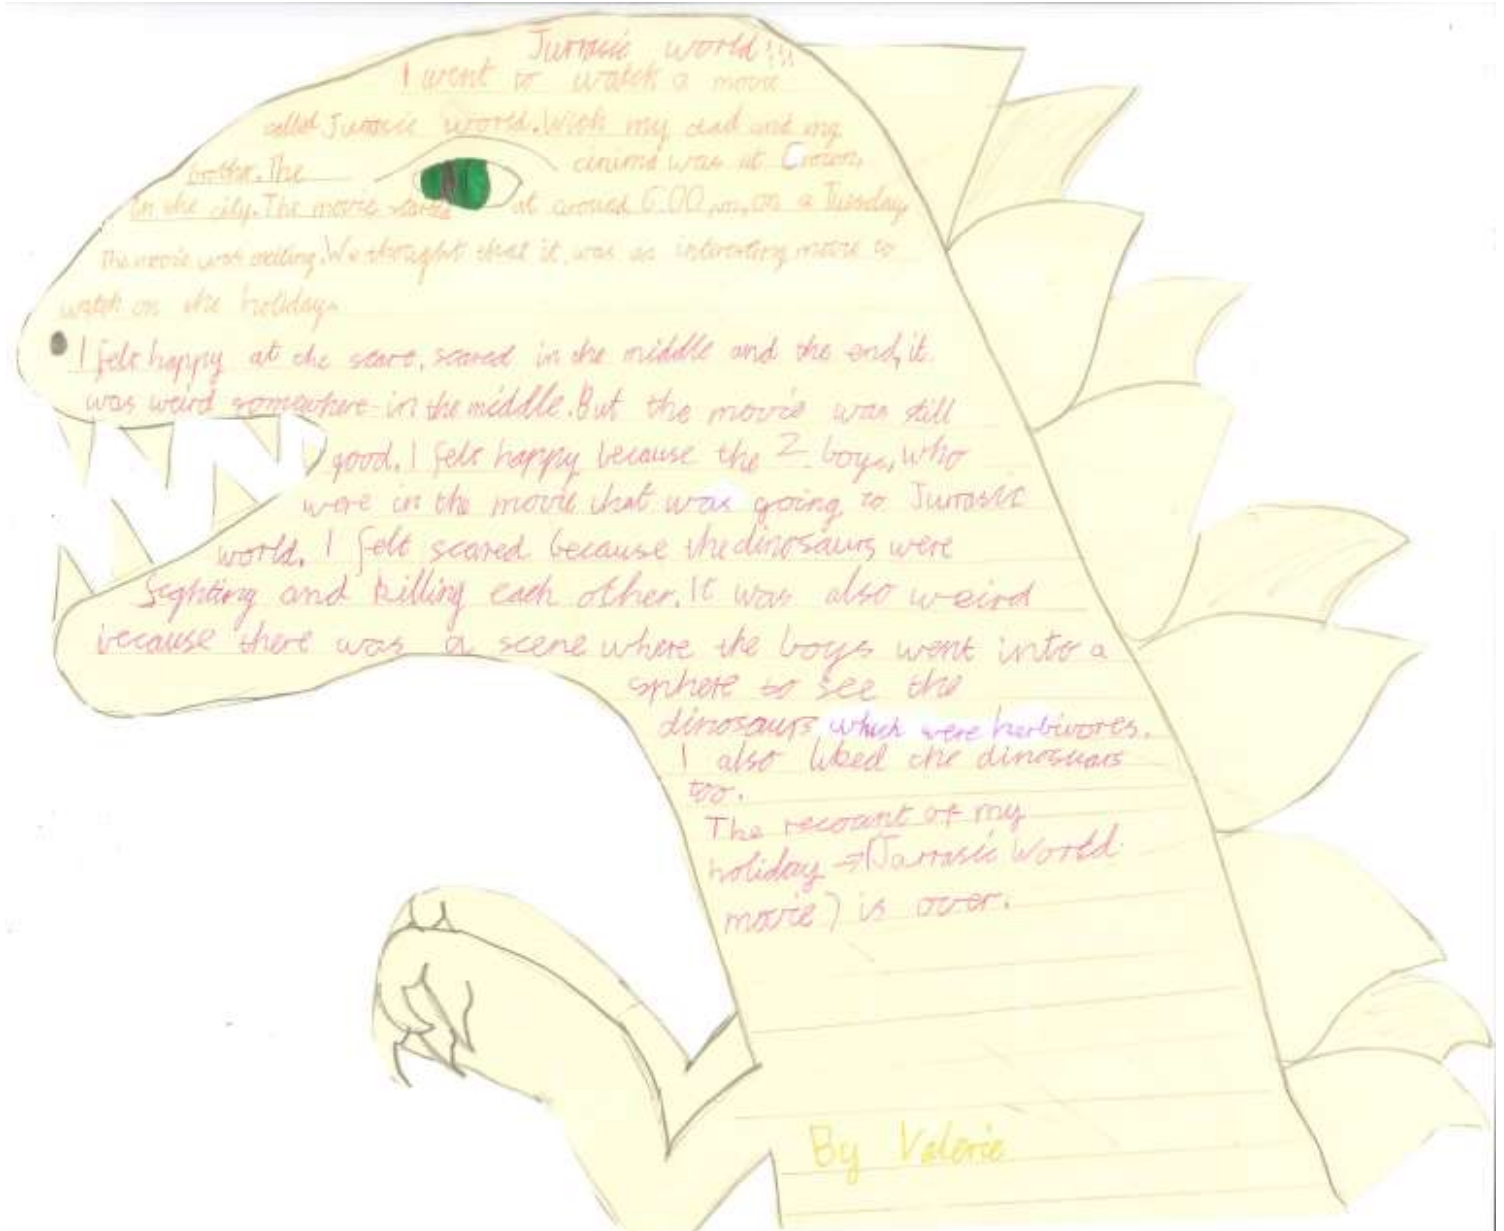 Jurrasic world!!!
I went to watch a movie
called Jurrasic world. With my dad and my
brother. The cinima was at Crown,
in the city. The movie started at around 6:00 pm, on a Tuesday.
The movie was exciting. We thought that it was an interesting movie to
watch on the holidays.
I felt happy at the start, scared in the middle and the end, it
was weird somewhere in the middle. But the movie was still
good. I felt happy because the 2 boys, who
were in the movie that was going to Jurrasic
world. I felt scared because the dinosaurs were
fighting and killing each other. It was also weird
because there was a scene where the boys went into a
sphere to see the
dinosaurs which were herbivores.
I also liked the dinosuars
too.
The recount of my
holiday → (Jurrasic World
movie) is over.
By Valerie